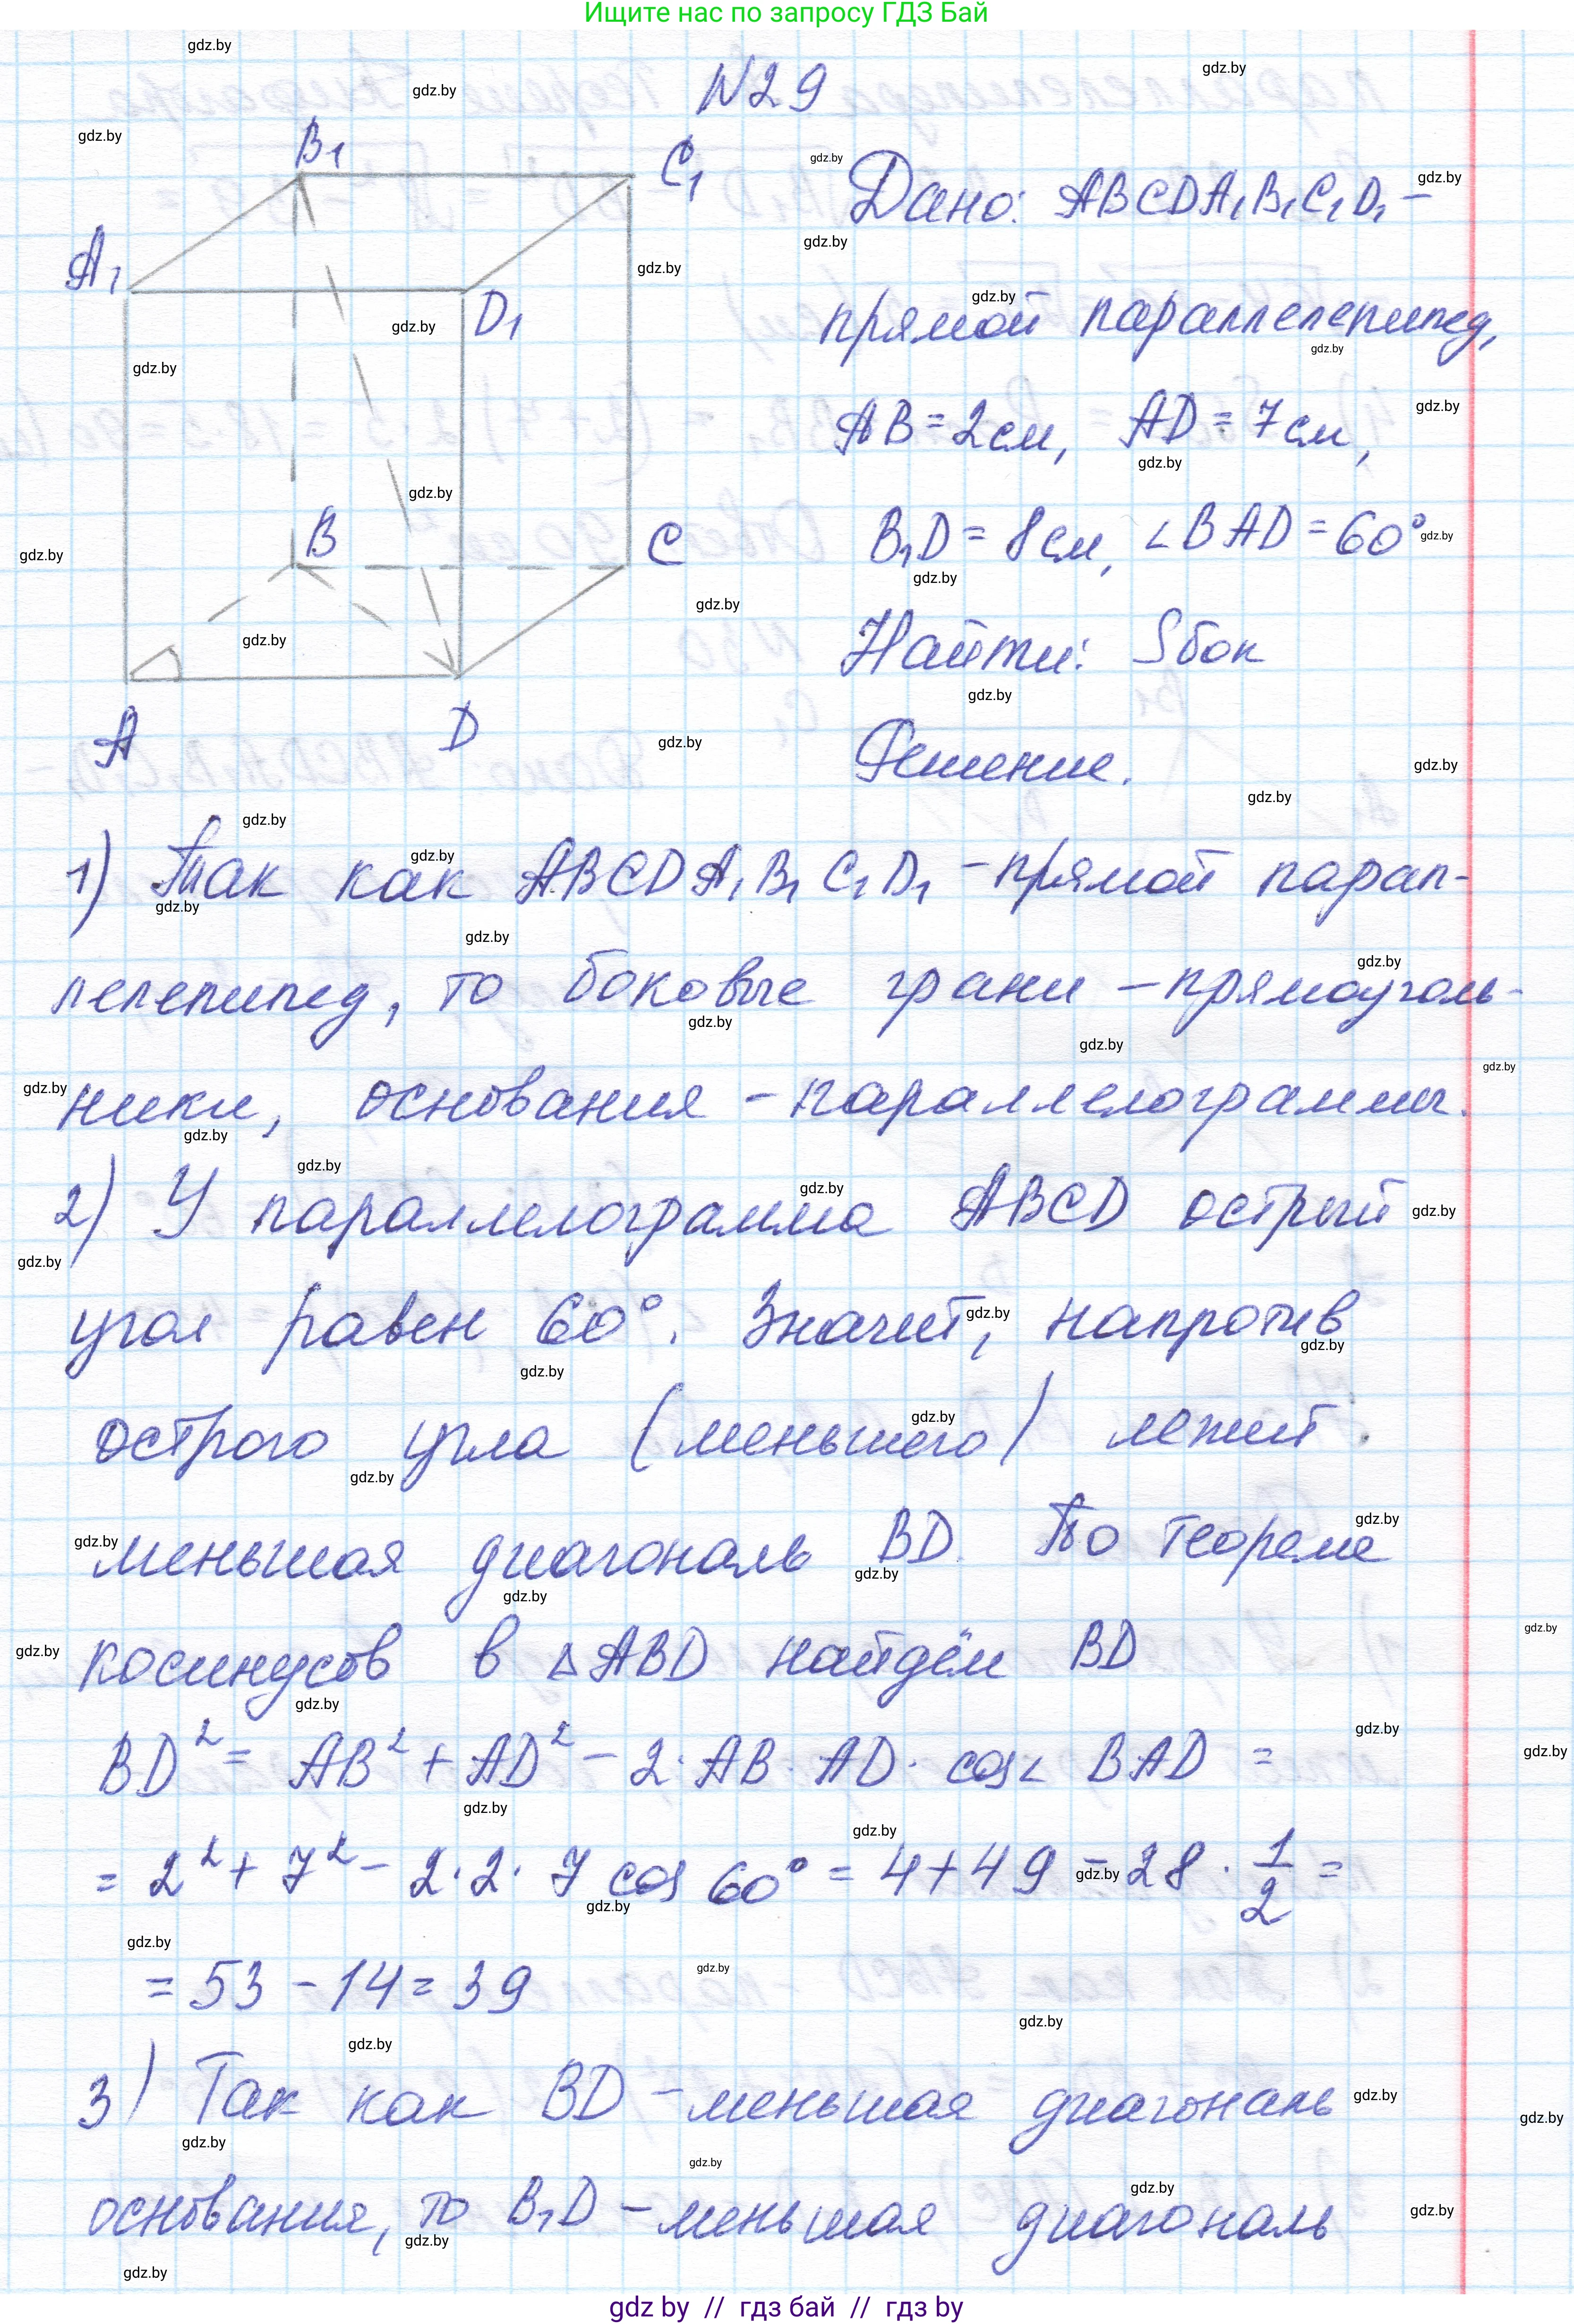 Ищите нас по запросу ГДЗ Бай
N29
B1
C1
A1
D1
B
C
A
D
Дано: ABCDA1B1C1D1 –
прямой параллелепипед,
AB = 2см, AD = 7см,
B1D = 8см, ∠BAD = 60°
Найти: Sбок
Решение.
1) Так как ABCDA1B1C1D1 – прямой парал-
лелепипед, то боковые грани – прямоуголь-
ники, основания – параллелограммы.
2) У параллелограмма ABCD острый
угол равен 60°. Значит, напротив
острого угла (меньшего) лежит
меньшая диагональ BD. По теореме
косинусов в △ABD найдём BD
BD² = AB² + AD² – 2·AB·AD·cos∠BAD =
= 2² + 7² – 2·2·7 cos 60° = 4+49 – 28 · 1/2 =
= 53 – 14 = 39
3) Так как BD – меньшая диагональ
основания, то B1D – меньшая диагональ
gdz by // гдз бай // гдз by